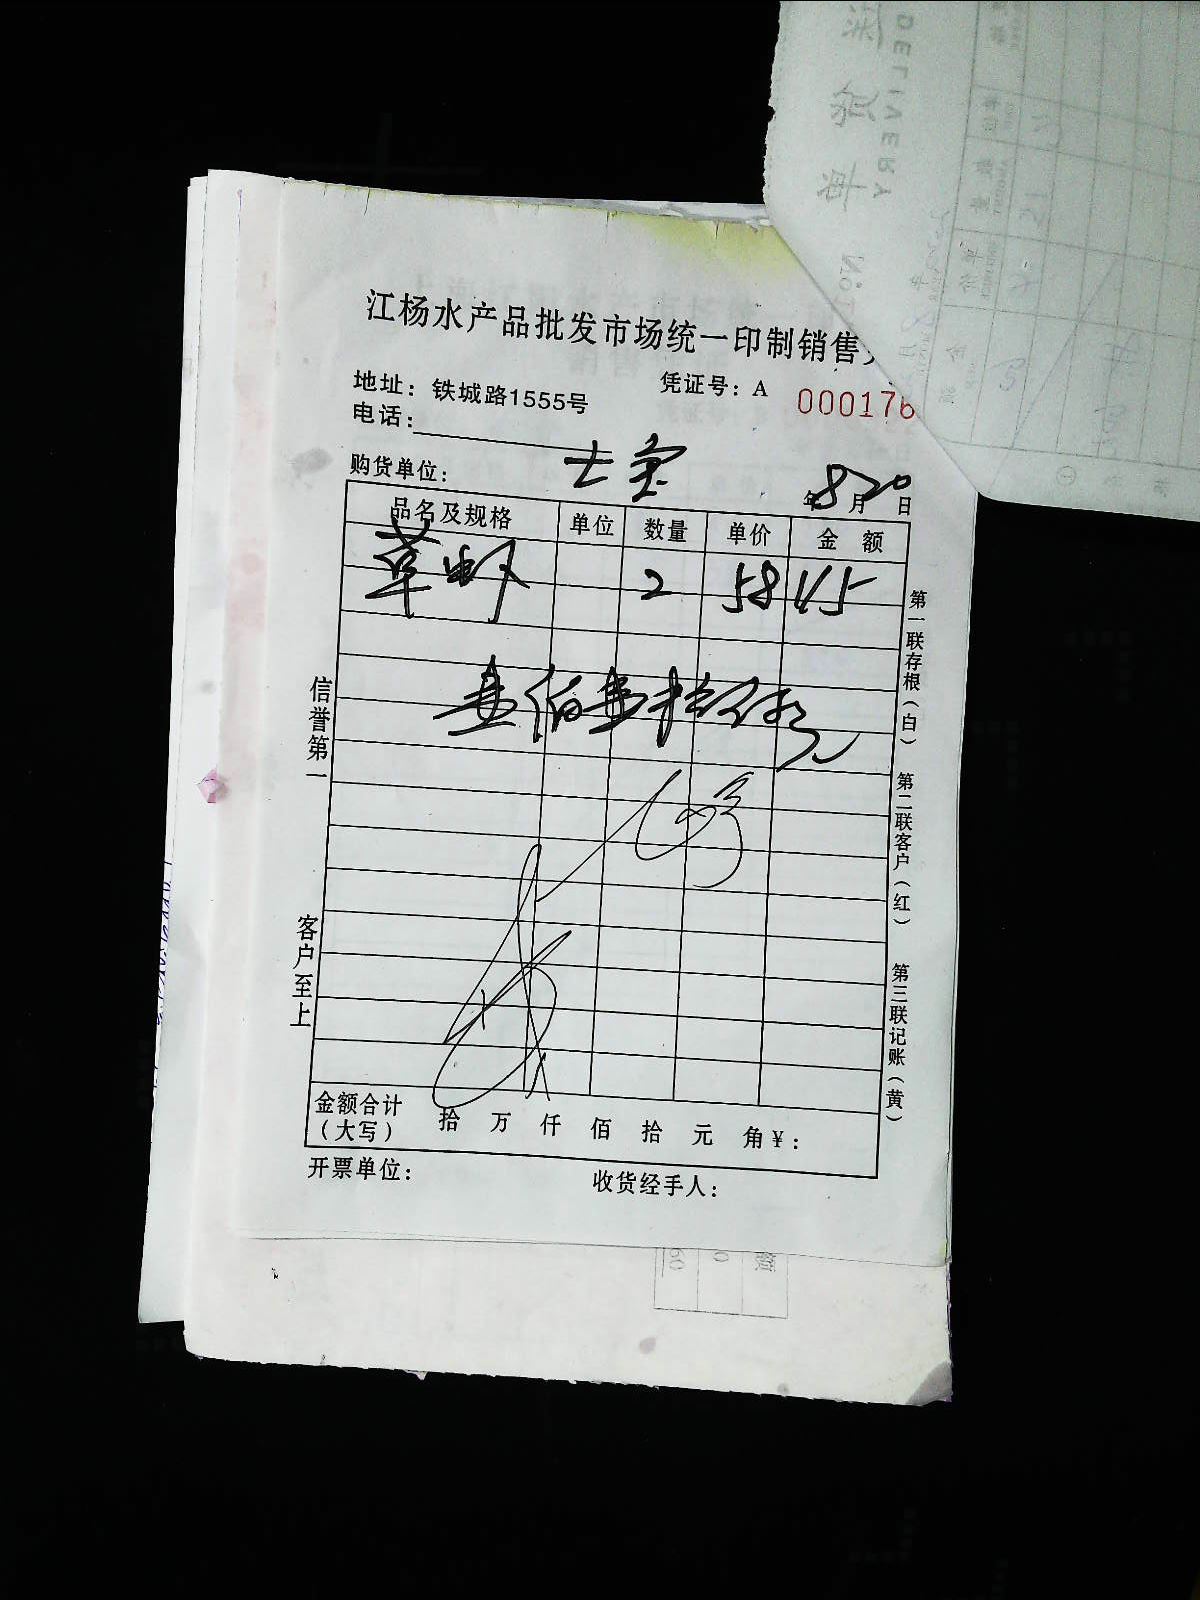 江杨水产品批发市场统一印制销售
地址：铁城路1555号
凭证号：A 000176
电话：
购货单位：
年8月20日
品名及规格 单位 数量 单价 金额
草虾 2 58 115
壹佰壹拾伍元
信誉第一
客户至上
第一联存根（白）
第二联客户（红）
第三联记账（黄）
金额合计（大写） 拾 万 仟 佰 拾 元 角 ¥：
开票单位：
收货经手人：
DELIVERY
No.